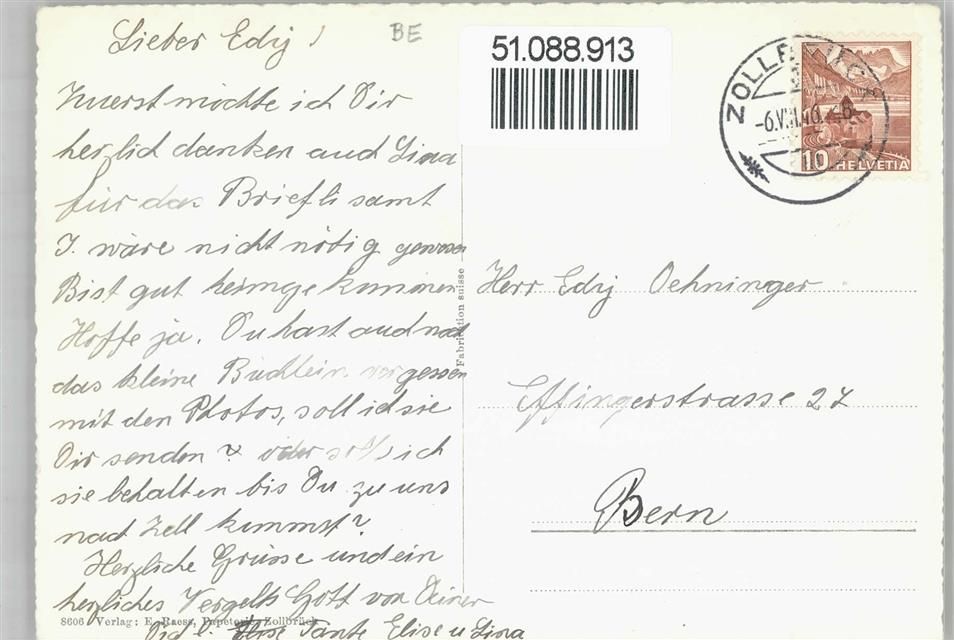 Lieber Edij!
BE
51.088.913
Zuerst möchte ich Dir
herzlich danken auch Lina
für das Briefli samt
I. wäre nicht nötig gewesen
Bist gut heimgekommen
Hoffe ja. Du hast auch noch
das kleine Büchlein vergessen
mit den Photos, soll ich sie
Dir senden? oder soll ich
sie behalten bis Du zu uns
nach Zell kommst?
Herzliche Grüsse und ein
herzliches Vergelts Gott von Deiner
Dich l. Tante Elise u Lina
8606 Verlag: E. Raess, Papeterie, Zollbrück
Fabrication suisse
ZOLLBRÜCK
-6.VIII.46.
10 HELVETIA
Herr Edij Oehninger
Effingerstrasse 27
Bern